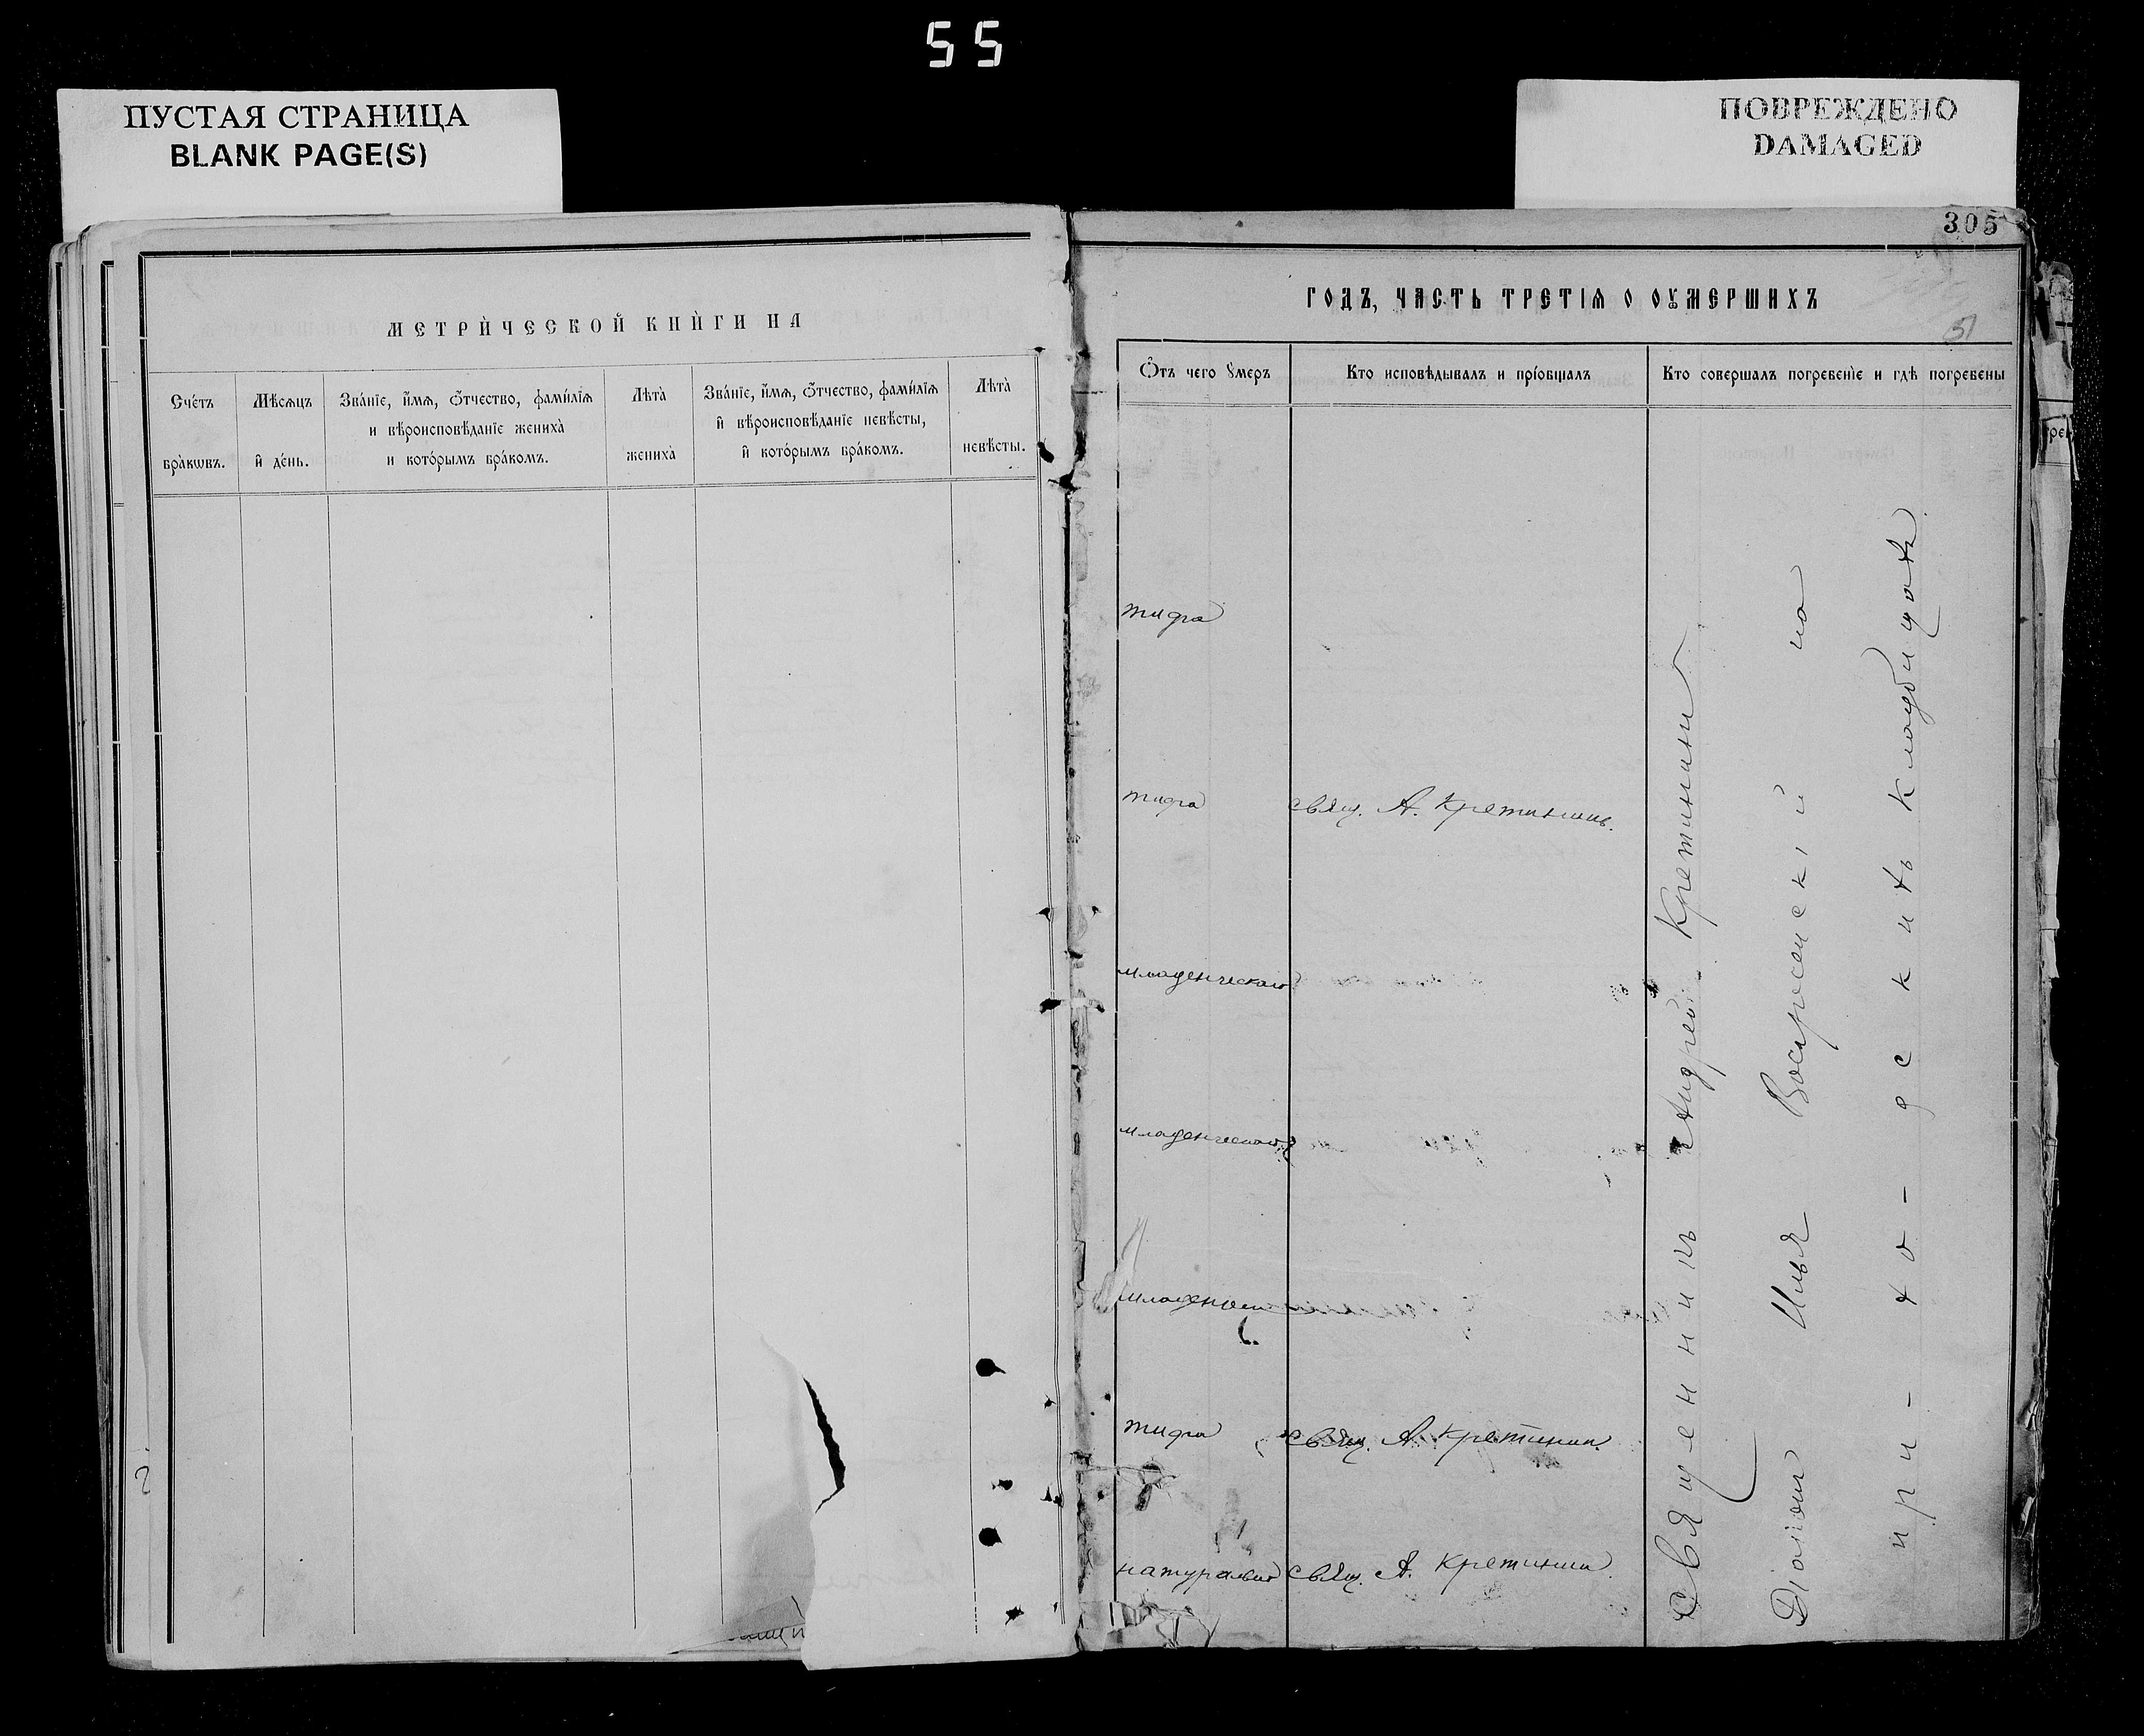 55
ПУСТАЯ СТРАНИЦА
BLANK PAGE(S)
ПОВРЕЖДЕНО
DAMAGED
МЕТРИ́ЧЕСКОЙ КНИ́ГИ НА
Сче́тъ
бра̀кѡвъ.
Мѣ́сѧцъ
и҆ де́нь.
Зва́нїе, и҆́мѧ, ѻ҆́тчество, фами́лїѧ
и вѣроисповѣ́данїе жениха̀
и кото́рымъ бра́комъ.
Лѣта̀
жениха̀
Зва́нїе, и҆́мѧ, ѻ҆́тчество, фами́лїѧ
и҆ вѣроисповѣ́данїе невѣ́сты,
и҆ кото́рымъ бра́комъ.
Лѣта̀
невѣ́сты.
305
51
ГОДЪ, ЧАСТЬ ТРЕТІѦ О ОУМЕРШИХЪ
Ѿтъ чего ꙋмеръ
Кто исповѣдывалъ и прїобщалъ
Кто совершалъ погребенїе и гдѣ погребены
тифа
тифа
свящ. А. Кретининъ.
младенческаго
младенческаго
тифа
свящ. А. Кретинин.
свящ. А. Кретинин.
Священникъ Андрей Кретинин
Илья Воскресенскій на
кладбищѣ